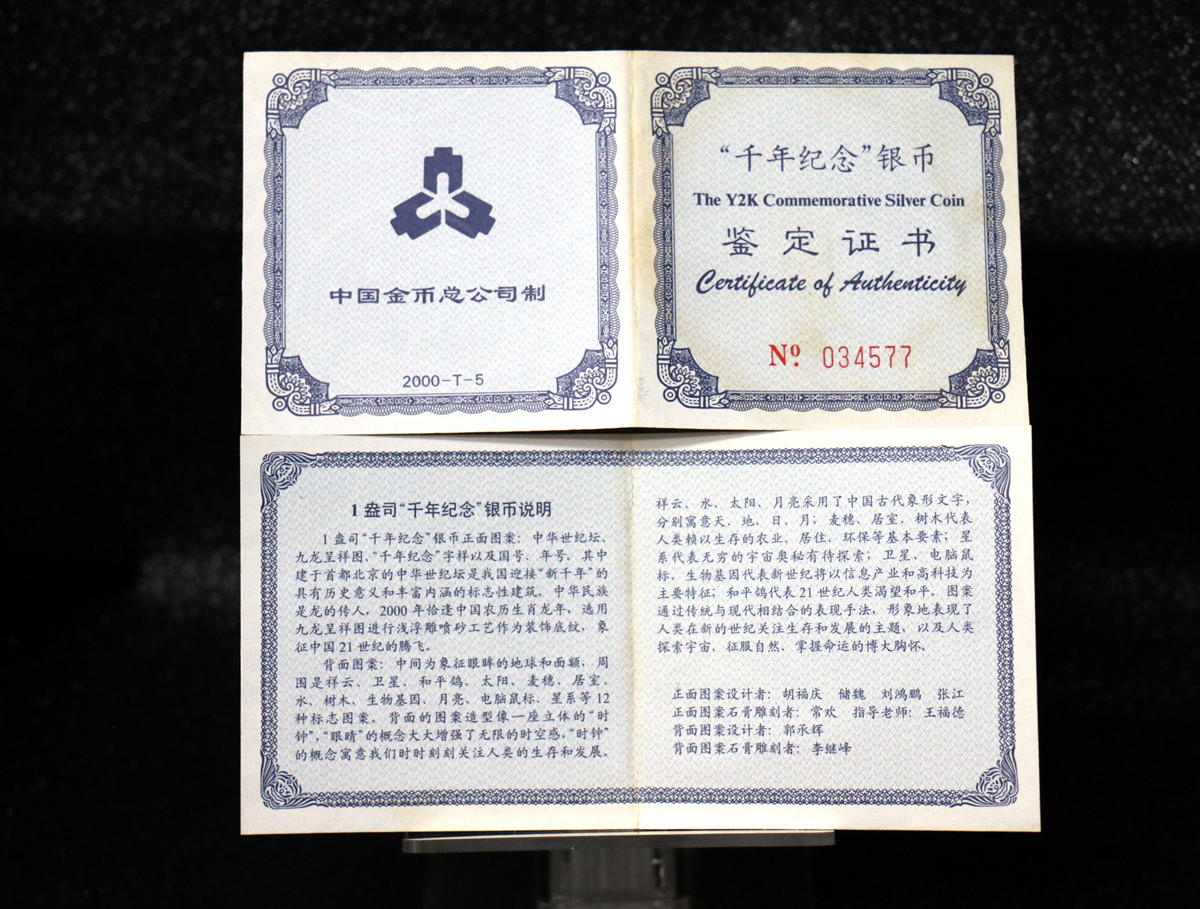 中国金币总公司制
2000-T-5
“千年纪念”银币
The Y2K Commemorative Silver Coin
鉴定证书
Certificate of Authenticity
Nº 034577
1 盎司“千年纪念”银币说明
1 盎司“千年纪念”银币正面图案：中华世纪坛、
九龙呈祥图、“千年纪念”字样以及国号、年号。其中
建于首都北京的中华世纪坛是我国迎接“新千年”的
具有历史意义和丰富内涵的标志性建筑。中华民族
是龙的传人，2000 年恰逢中国农历生肖龙年，选用
九龙呈祥图进行浅浮雕喷砂工艺作为装饰底纹，象
征中国 21 世纪的腾飞。
背面图案：中间为象征眼眸的地球和面额，周
围是祥云、卫星、和平鸽、太阳、麦穗、居室、
水、树木、生物基因、月亮、电脑鼠标、星系等 12
种标志图案。背面的图案造型像一座立体的“时
钟”，“眼睛”的概念大大增强了无限的时空感，“时钟”
的概念寓意我们时时刻刻关注人类的生存和发展。
祥云、水、太阳、月亮采用了中国古代象形文字，
分别寓意天、地、日、月；麦穗、居室、树木代表
人类赖以生存的农业、居住、环保等基本要素；星
系代表无穷的宇宙奥秘有待探索；卫星、电脑鼠
标、生物基因代表新世纪将以信息产业和高科技为
主要特征；和平鸽代表 21 世纪人类渴望和平。图案
通过传统与现代相结合的表现手法，形象地表现了
人类在新的世纪关注生存和发展的主题，以及人类
探索宇宙、征服自然、掌握命运的博大胸怀。
正面图案设计者：胡福庆 储魏 刘鸿鹏 张江
正面图案石膏雕刻者：常欢 指导老师：王福德
背面图案设计者：郭承辉
背面图案石膏雕刻者：李继峰